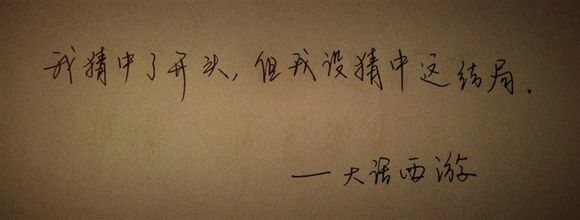 我猜中了开头，但我没猜中这结局．
—大话西游